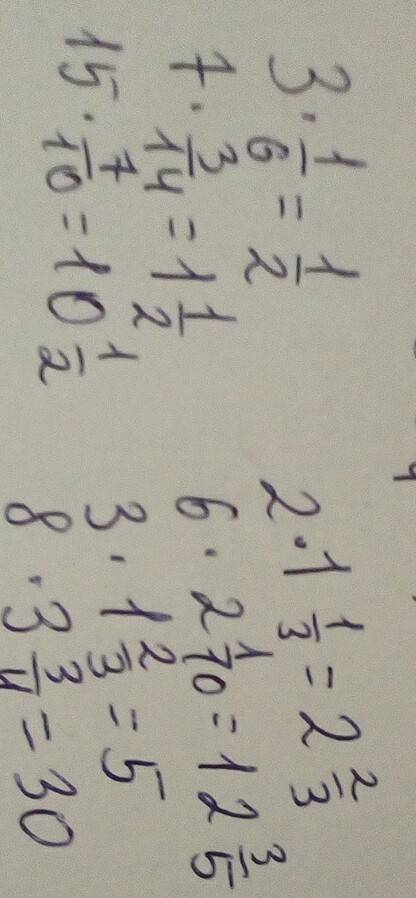 3 · 1/6 = 1/2
7 · 3/14 = 1 1/2
15 · 7/10 = 10 1/2
2 · 1 1/3 = 2 2/3
6 · 2 1/10 = 12 3/5
3 · 1 2/3 = 5
8 · 3 3/4 = 30